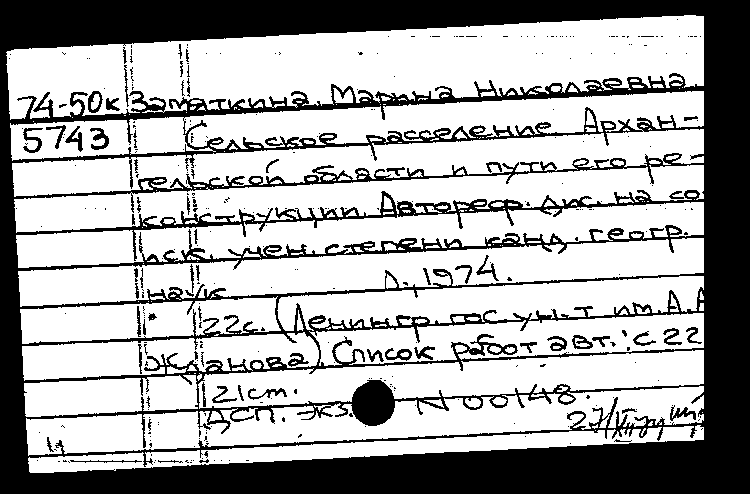 74-50к Замяткина, Марина Николаевна.
5743 Сельское расселение Архан-
гельской области и пути его ре-
конструкции. Автореф. дис. на со
иск. учен. степени канд. геогр.
наук Л., 1974.
22с. (Ленингр. гос. ун-т им. А.А
Жданова). Список работ авт.: с. 22
21ст.
ДСП. экз. N 00148.
27/XII